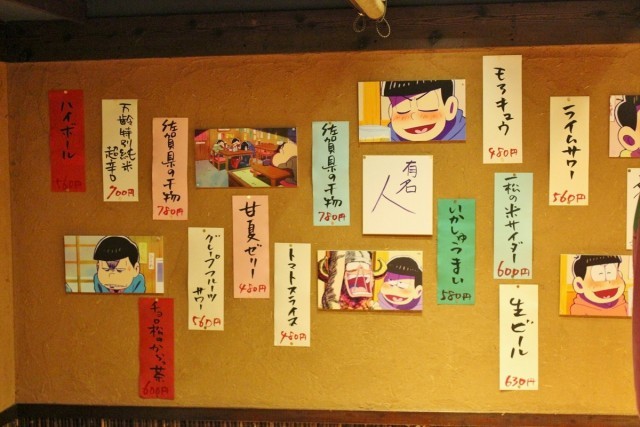 ハイボール
560円
万齢特別純米
超辛口
700円
佐賀県の干物
780円
グレープフルーツ
サワー
560円
甘夏ゼリー
480円
トマトスライス
480円
佐賀県の干物
780円
有名
人
いかしゅうまい
580円
モろキュウ
480円
一松の米サイダー
600円
生ビール
630円
ライムサワー
560円
チョロ松のからい茶
600円